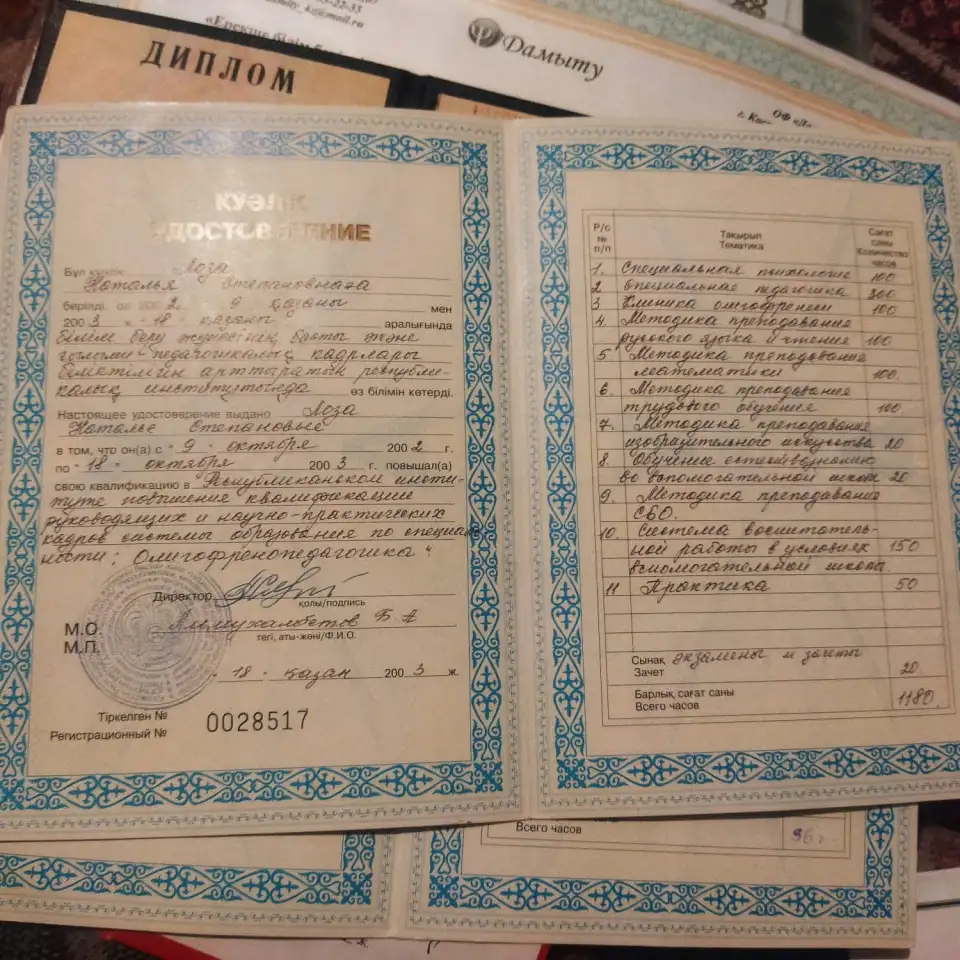 53-22-33
damdy_kz@mail.ru
«Ерекше білім
Дамыту
ДИПЛОМ
КУӘЛІК
УДОСТОВЕРЕНИЕ
Бұл куәлік Лоза
Наталья Степановнаға
берілді ол 2002 ж. 9 қазаны мен
2003 ж. 18 қазаны аралығында
білім беру жүйесінің басты және
ғылыми-педагогикалық кадрлары
біліктілігін арттыратын республи-
калық институтында өз білімін көтерді.
Настоящее удостоверение выдано Лоза
Наталье Степановне
в том, что он(а) с "9" октября 2002 г.
по "18" октября 2003 г. повышал(а)
свою квалификацию в Республиканском инсти-
туте повышения квалификации
руководящих и научно-практических
кадров системы образования по специаль
ности: Олигофренопедагогика"
Директор
қолы/подпись
Б А
тегі, аты-жөні/Ф.И.О.
М.О.
М.П.
18 қазан 2003 ж.
Тіркелген №
Регистрационный № 0028517
Р/с № п/п Тақырып Тематика Сағат саны Количество часов
1. Специальная психология 100
2 Специальная педагогика 300
3 Клиника олигофрении 100
4. Методика преподавания
русского языка и чтения 100
5. Методика преподавания
математики 100.
6. Методика преподавания
трудового обучения 100.
7. Методика преподавания
изобразительного искусства 20
8. Обучение естествознанию
во вспомогательной школе 20
9. Методика преподавания
СБО.
10. Система воспитатель-
ной работы в условиях 150
вспомогательной школы.
11 Практика 50
Сынақ экзамены и зачеты
Зачет 20
Барлық сағат саны
Всего часов 1180.
Всего часов 96 г.